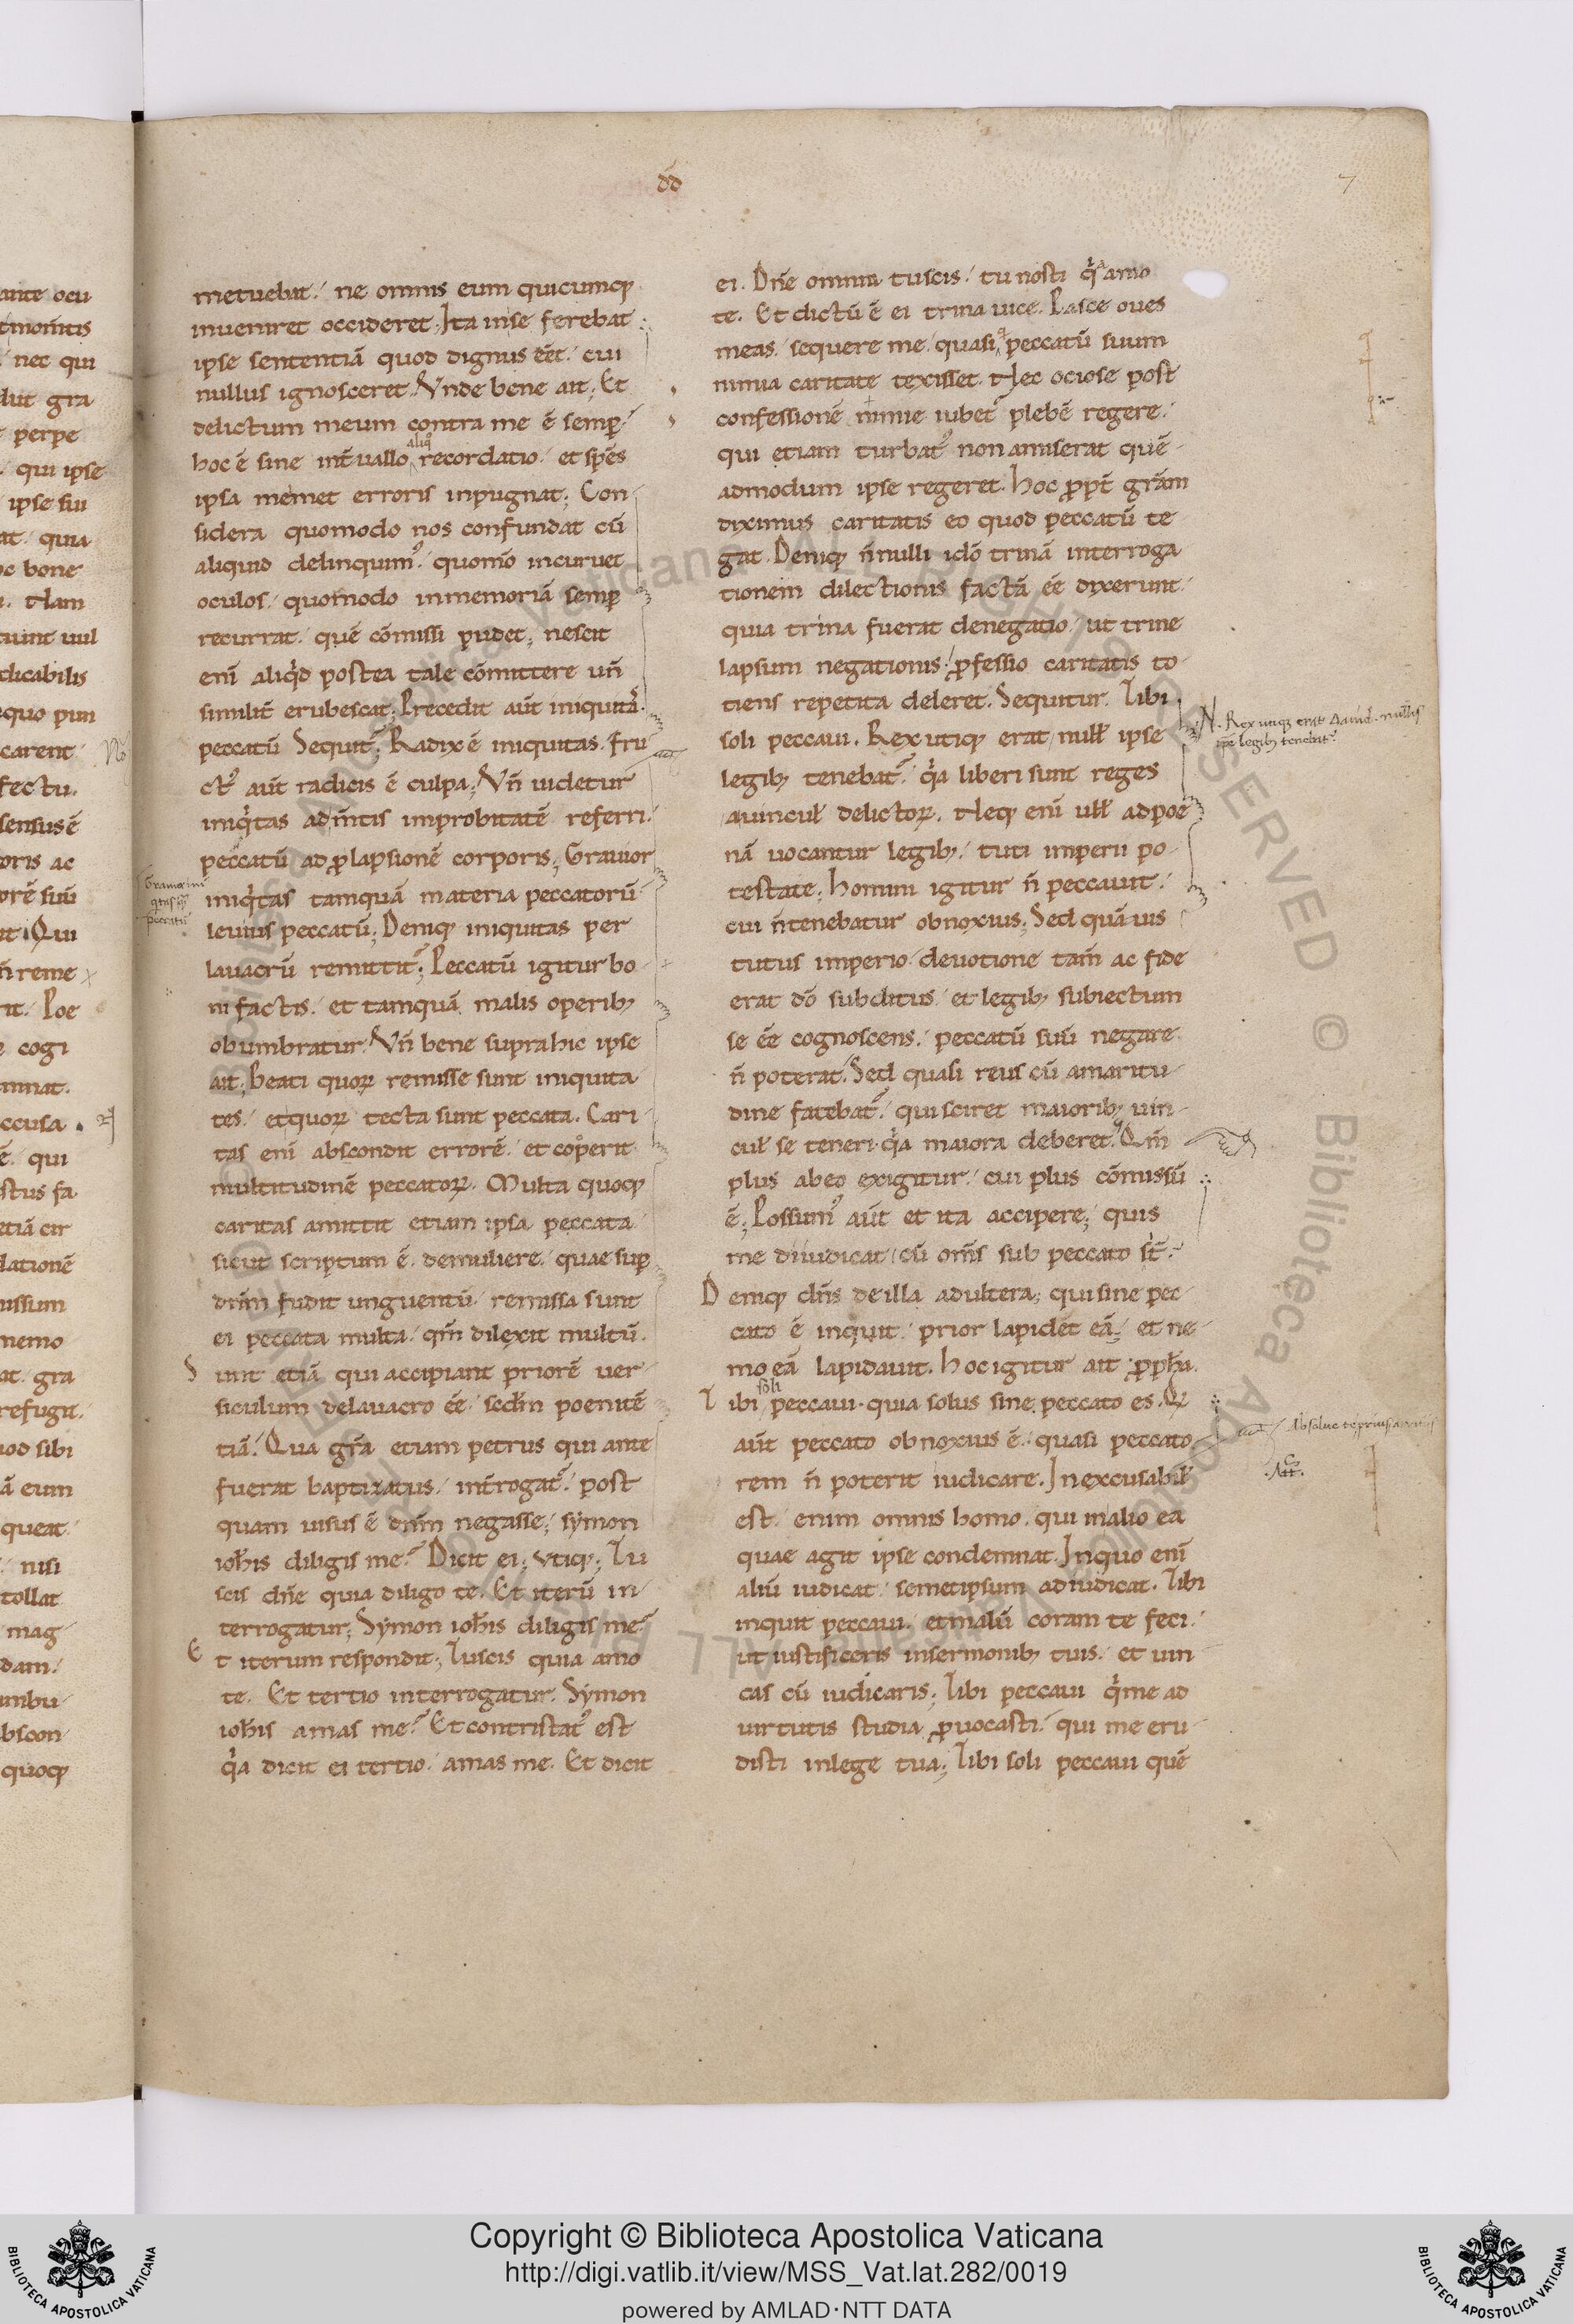 dd̄
7
metuebat. ne omnis eum quicumq;
inueniret occideret. Ita in se ferebat
ipse sententiā quod dignus eēt. cui
nullus ignosceret. Vnde bene ait; Et
delictum meum contra me ē semp.
aliq
hoc ē sine int̄uallo recordatio. et spēs
ipsa memet erroris inpugnat; Con
sidera quomodo nos confundat cū
aliquid delinquim᾿. quomō incuruet
oculos. quomodo inmemoriā semp
recurrat. quē cōmissi pudet; nescit
enī aliqd postea tale cōmittere uñ
similit̄ erubescat; Precedit aūt iniquitas.
peccatū Sequit᾿; Radix ē iniquitas. fru
ct᾿ aūt radicis ē culpa; Vñ uidetur
iniqtas ad mtis improbitatē referri.
peccatū ad plapsionē corporis; Grauior
iniqtas tamquā materia peccatorū
leuius peccatū; Deniq; iniquitas per
lauacrū remittit᾿; Peccatū igitur bo
ni factis. et tamquā malis operib;
obumbratur. Vñ bene supra hic ipse
ait; Beati quoꝝ remisse sunt iniquita
tes. et quoꝝ tecta sunt peccata. Cari
tas enī abscondit errorē. et coperit
multitudinē peccatoꝝ. Multa quoq;
caritas amittit etiam ipsa peccata
sicut scriptum ē. demuliere. quae sup
dnm̄ fudit unguentū. remissa sunt
ei peccata multa. qm̄ dilexit multū.
S unt etiā qui accipiant priorē uer
siculum delauacro eē. secdm poenitē
tiā. Qua grā etiam petrus qui ante
fuerat baptizatus. int̄rogat᾿. post
quam uisus ē dnm̄ negasse; symon
iohis diligis me? Dicit ei; vtiq; Tu
scis dñe quia diligo te. Et iterū in
terrogatur; Symon iohis diligis me?
E t iterum respondit; Tuscis quia amo
te. Et tertio interrogatur. Symon
iohis amas me? Et contristat᾿ est
qa dicit ei tertio. amas me. Et dicit
ei. Dñe omnia tuscis. tu nosti qa amo
te. Et dictū ē ei trina uice. Pasce oues
meas. sequere me. quasi q peccatū suum
nimia caritate texisset. Nec ociose post
confessionē nimie iubet᾿ plebē regere.
qui etiam turbat᾿ non amiserat quē
admodum ipse regeret. hoc ppt̄ grām
diximus caritatis eo quod peccatū te
gat. Deniq; ñnulli idō trinā interroga
tionem dilectionis factā eē dixerunt.
quia trina fuerat denegatio. ut trine
lapsum negationis. pfessio caritatis to
tiens repetita deleret. Sequitur. Tibi
soli peccaui. Rex utiq; erat null᾿ ipse
legib; tenebat᾿. qa liberi sunt reges
auincul᾿ delictoꝝ. Neq; enī ull᾿ adpoe
nā uocantur legib;. tuti imperii po
testate; homini igitur ñ peccauit.
cui ñtenebatur obnoxius; Sed quā uis
tutus imperio. deuotione tam̄ ac fide
erat dō subditus. et legib; subiectum
se eē cognoscens. peccatū suū negare
ñ poterat. Sed quasi reus cū amaritu
dine fatebat᾿. qui sciret maiorib; uin
cul᾿ se teneri. qa maiora deberet. Qm̄
plus abeo exigitur. cui plus cōmissū
ē; Possum᾿ aūt et ita accipere; quis
me diiudicat cū om̄s sub peccato st̄.
D eniq; dn̄s de illa adultera; qui sine pec
cato ē inquit. prior lapidet eā. et ne
mo eā lapidauit. hoc igitur ait ppha.
soli
T ibi peccaui. quia solus sine peccato es. Q
aūt peccato obnoxius ē. quasi peccato
rem ñ poterit iudicare. Inexcusabil᾿
est. enim omnis homo. qui in alio ea
quae agit ipse condemnat. Inquo enī
aliū iudicat. semetipsum adiudicat. Tibi
inquit peccaui. et malū coram te feci.
ut iustificeris insermonib; tuis. et uin
cas cū iudicaris; Tibi peccaui qi me ad
uirtutis studia puocasti. qui me eru
disti inlege tua; Tibi soli peccaui quē
N. Rex utiq; erat Dauid. nullis
ipse legib; tenebat᾿
Absolue te prius
Copyright © Biblioteca Apostolica Vaticana
http://digi.vatlib.it/view/MSS_Vat.lat.282/0019
powered by AMLAD·NTT DATA
BIBLIOTECA APOSTOLICA VATICANA
BIBLIOTECA APOSTOLICA VATICANA